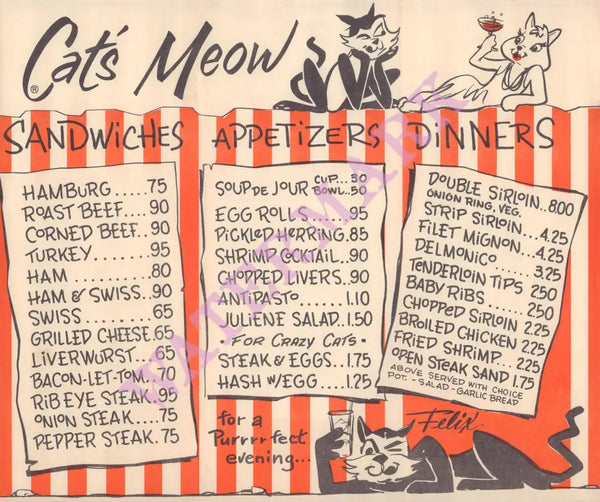 Cat's Meow
®
SANDWICHES
HAMBURG.....75
ROAST BEEF....90
CORNED BEEF..90
TURKEY.......95
HAM..........80
HAM & SWISS..90
SWISS........65
GRILLED CHEESE.65
LIVERWURST...65
BACON-LET-TOM..70
RIB EYE STEAK.95
ONION STEAK....75
PEPPER STEAK.75
APPETIZERS
SOUP DE JOUR CUP...30
BOWL..50
EGG ROLLS.....95
PICKLED HERRING.85
SHRIMP COCKTAIL..90
CHOPPED LIVERS..90
ANTIPASTO.....1.10
JULIENE SALAD..1.50
• FOR CRAZY CATS •
STEAK & EGGS..1.75
HASH W/EGG....1.25
for a
Purrrrfect
evening...
DINNERS
DOUBLE SIRLOIN..8.00
ONION RING, VEG.
STRIP SIRLOIN...4.25
FILET MIGNON...4.25
DELMONICO......3.25
TENDERLOIN TIPS 2.50
BABY RIBS.....2.50
CHOPPED SIRLOIN 2.25
BROILED CHICKEN 2.25
FRIED SHRIMP...2.25
OPEN STEAK SAND 1.75
ABOVE SERVED WITH CHOICE
POT. - SALAD - GARLIC BREAD
Felix
WATERMARK